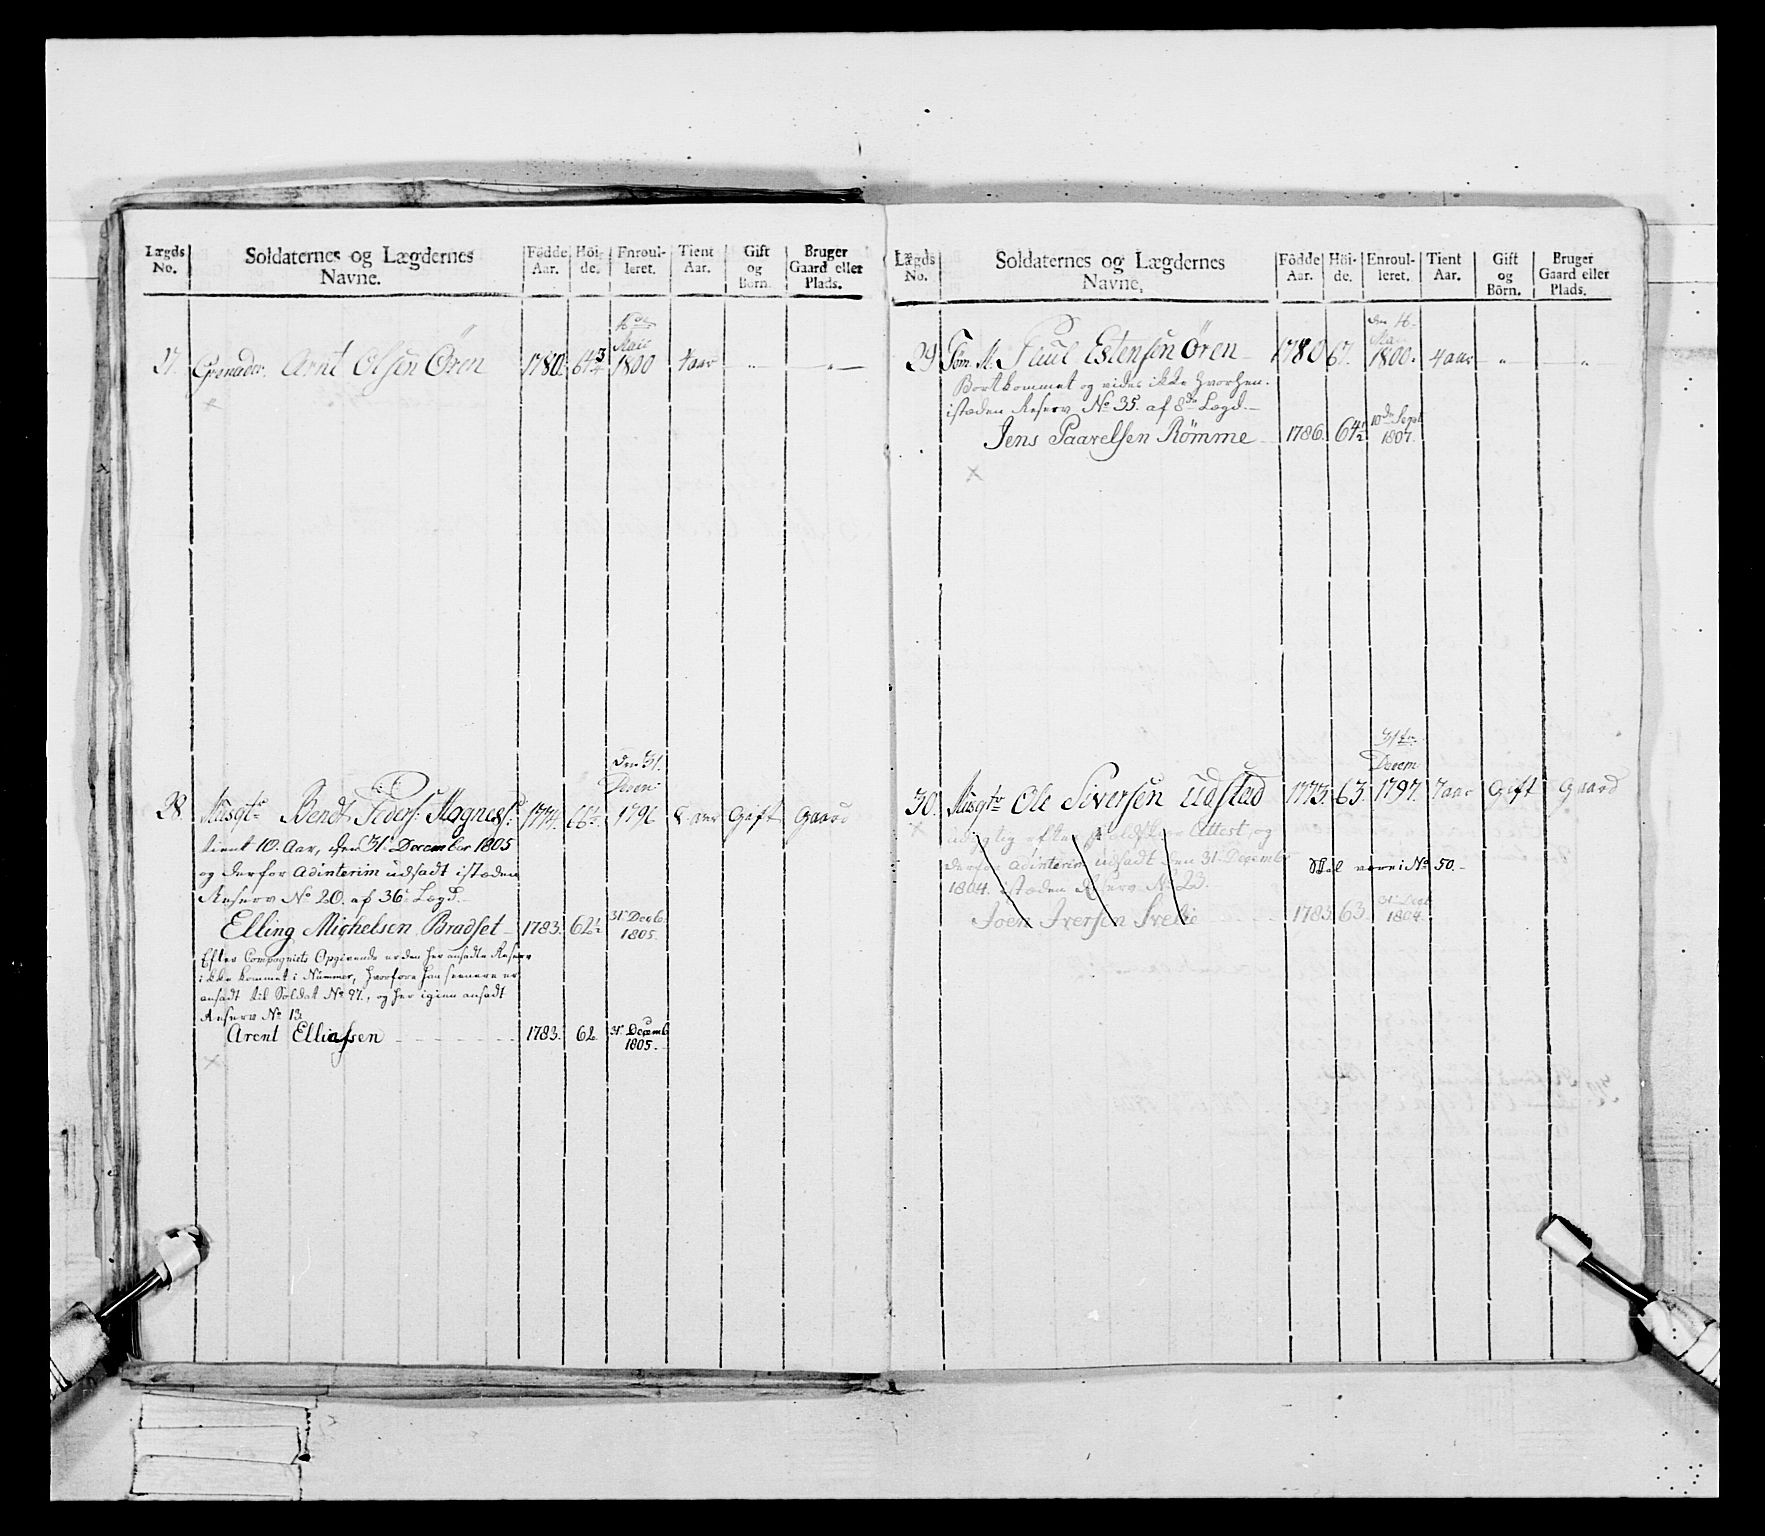 Lægds No. | Soldaternes og Lægdernes Navne. | Fødde Aar. | Höi-de. | Enroul-leret. | Tient Aar. | Gift og Börn. | Bruger Gaard eller Plads.
4de Maii
27. Grenader. Arnt Olsen Ören 1780. 64¾ 1800 4 aar " "
×
Den 31. Decem:
28. Musqtr Bendt Peders: Magness: 1774. 66½ 1796 8 aar Gift Gaard
tient 10. Aar, den 31. December 1805
og derfor adinterim udsadt isteden
Reserv No 20. af 36. Lægd.
Elling Michelsen Bradset 1783. 62½ 31. Decb. 1805.
Efter Compagniets Opgivende er den her ansadte Reserv
ikke kommet i Nummer, hvorfore han seenere er
ansadt til Soldat No 97., og her igien ansadt
Reserv No 13.
Arent Elliassen 1783. 62 31. Decemb 1805.
×
Lægds No. | Soldaternes og Lægdernes Navne. | Födde Aar. | Höi-de. | Enroul-leret. | Tient Aar. | Gift og Börn. | Bruger Gaard eller Plads.
den 4.
29 Töm. M. Paul Estensen Ören 1780 67. 1800. 4 aar " "
Bortkommet og vides ikke hvorhen.
isteden Reserv No 35. af 8de Lægd
Jens Paarelsen Römme 1786. 64½ 10de Sept 1807.
×
31te Decem
30. Musqtr Ole Siversen Udstad 1773. 63. 1797. 7 aar Gift Gaard
×
udygtig efter Attest, og
derfor adinterim udsadt den 31. Decembr Skal være i No 50.
1804. isteden Reserv No 23.
Joen Iversen 1783 63. 31. Decb 1804.